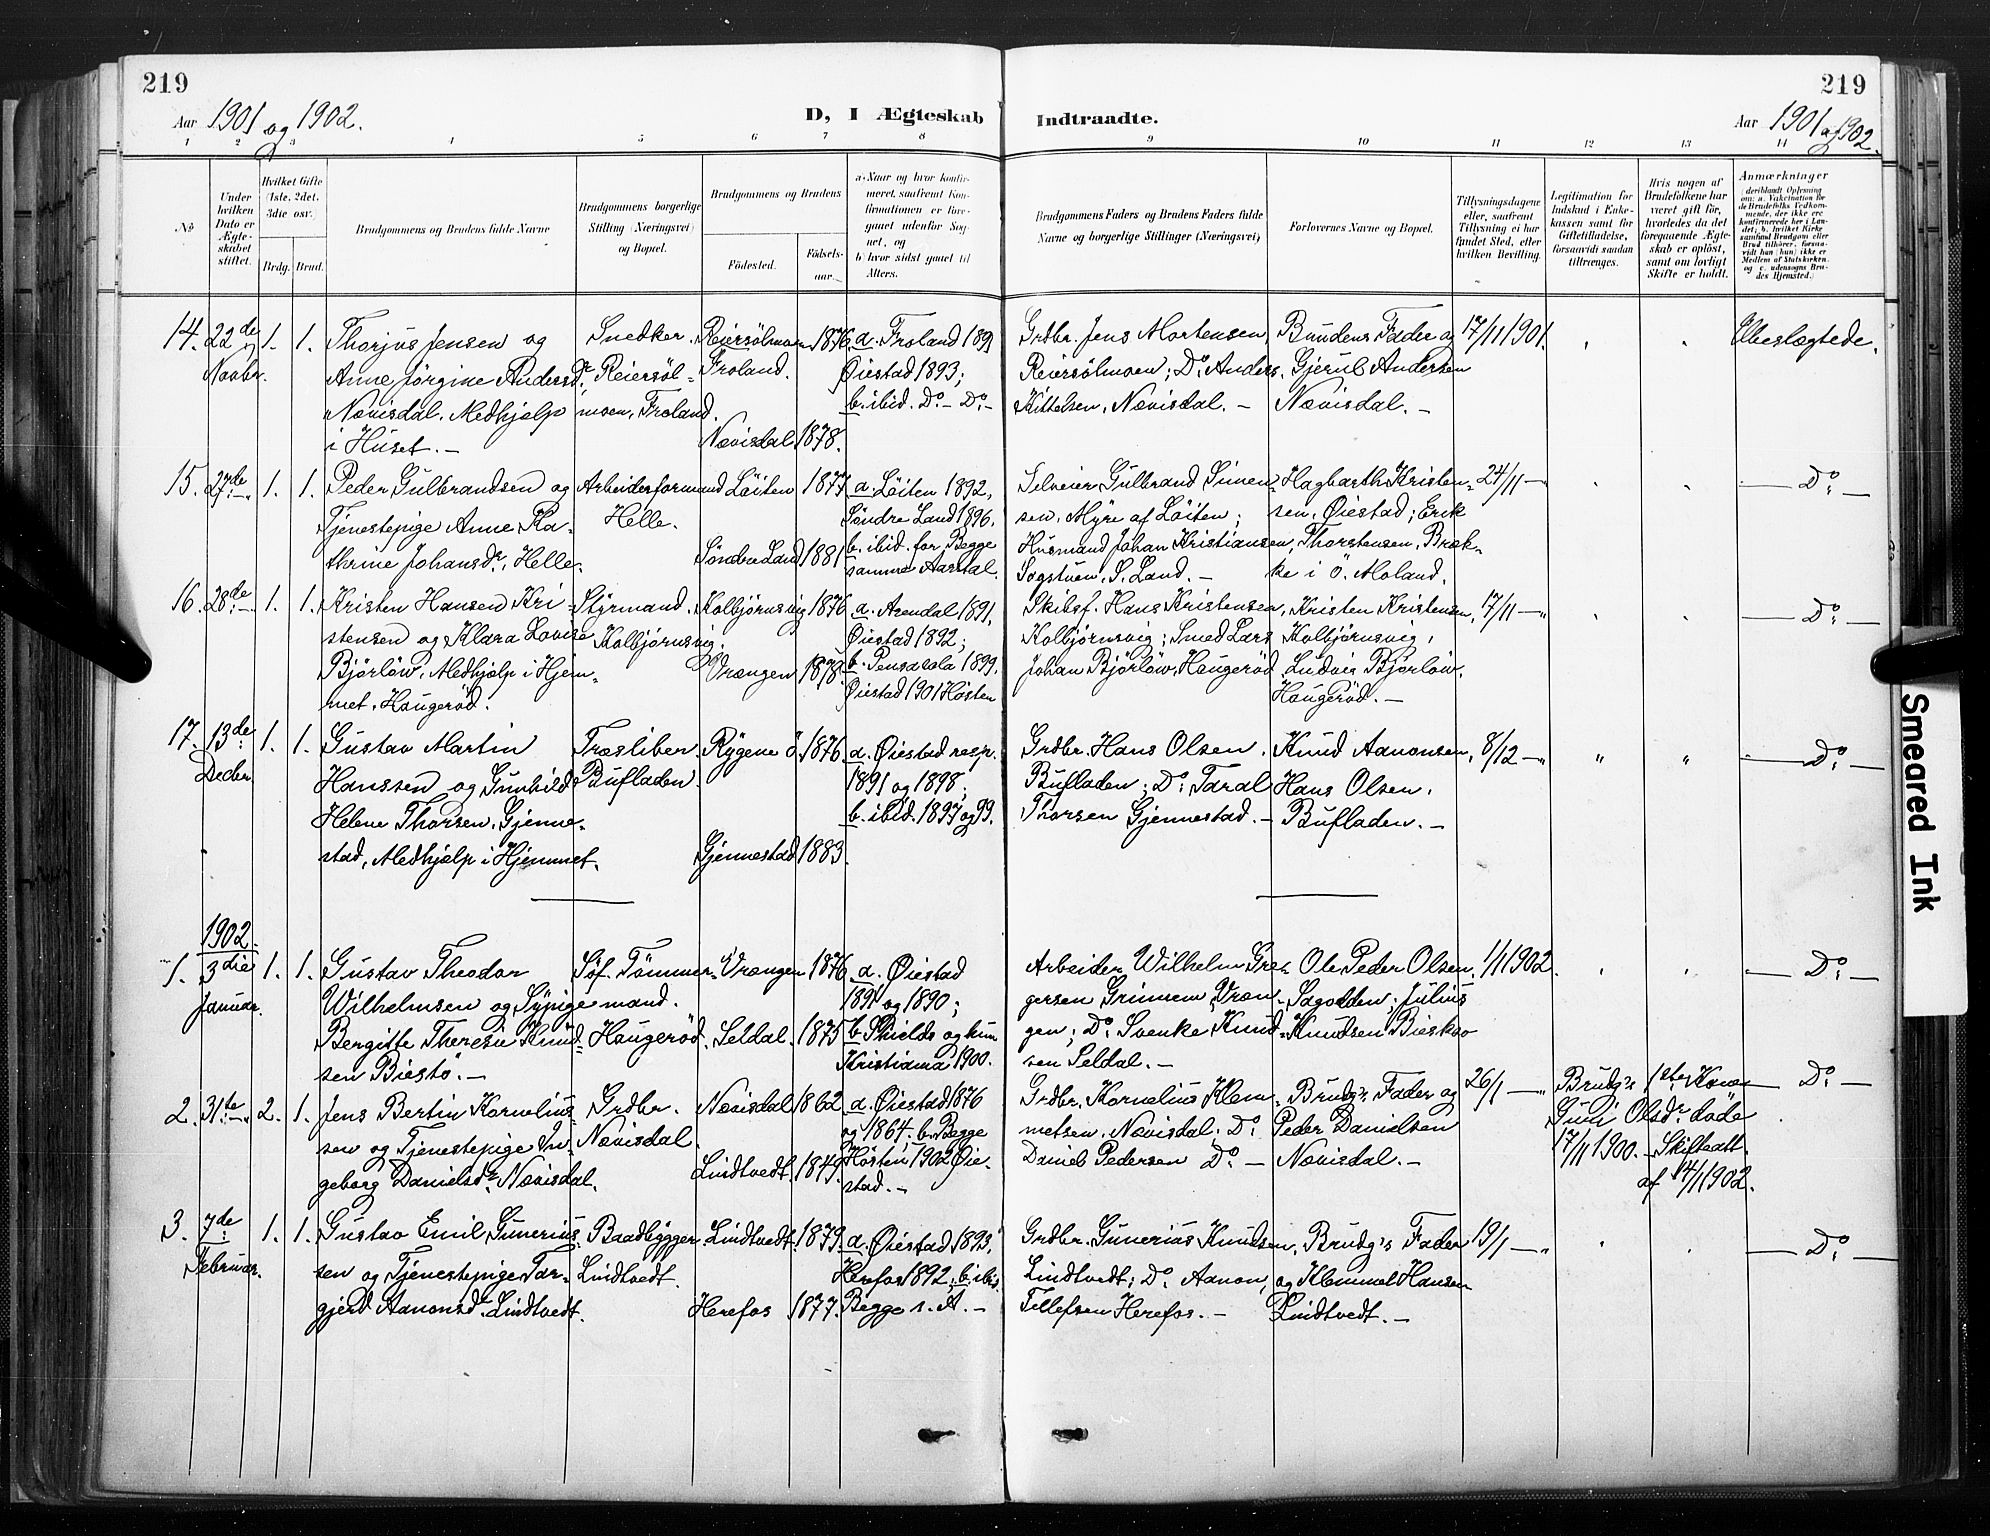 219
219
Aar 1901 og 1902.
D, I Ægteskab Indtraadte.
Aar 1901 og 1902.
1 2 3 4 5 6 7 8 9 10 11 12 13 14
№
Under hvilken Dato er Ægteskabet stiftet.
Hvilket Gifte (1ste, 2det, 3die osv.)
Brdg. Brud.
Brudgommens og Brudens fulde Navne
Brudgommens borgerlige Stilling (Næringsvei) og Bopæl.
Brudgommens og Brudens
Fødested.
Fødselsaar.
a) Naar og hvor konfirmeret, saafremt Konfirmationen er foregaaet udenfor Sognet, og
b) hvor sidst gaaet til Alters.
Brudgommens Faders og Brudens Faders fulde Navne og borgerlige Stillinger (Næringsvei)
Forlovernes Navne og Bopæl.
Tillysningsdagene eller, saafremt Tillysning ei har fundet Sted, efter hvilken Bevilling.
Legitimation for Indskud i Enkekassen samt for Giftetilladelse, forsaavidt saadan tiltrænges.
Hvis nogen af Brudefolkene har været gift før, hvorledes da det foregaaende Ægteskab er opløst, samt om lovligt Skifte er holdt.
Anmærkninger
14. 22de Novbr. 1. 1.
Thorjus Jensen og
Anne Jörgine Andersdr.
Nævisdal. Medhjælp
i Huset. —
Snedker.
Reiersöl-
moen, Froland.
Reiersölmoen 1876
Froland.
Nævisdal 1878.
a. Froland 1891
Øiestad 1893;
b. ibid. Do — Do —
Grdbr. Jens Mortensen,
Reiersölmoen; Do Anders
Kittelsen, Nævisdal. —
Brudens Fader og
Gjerul Andersen
Nævisdal. —
17/11 1901.
Ubeslægtede.
15. 27de 1. 1.
Peder Gulbrandsen og
Tjenestepige Anne Ka-
thrine Johansdr. Helle.
Arbeiderformand
Helle.
Löiten 1877
Söndre Land 1881
a. Löiten 1892,
Söndre Land 1896.
b. ibid. for Begge
samme Aarstal.
Selveier Gulbrand Simen-
sen, Myre af Löiten;
Husmand Johan Kristiansen,
Sogstuen, S. Land. —
Hagbarth Kristen-
sen, Øiestad; Erik
Thorstensen, Bræk-
ke i Ö. Moland.
24/11 —
— Do —
16. 28de 1. 1.
Kristen Hansen Kri-
stensen og Klara Lovise
Björlöw, Medhjælp i Hjem-
met, Haugeröd.
Styrmand.
Kolbjörnsvig.
Kolbjörnsvig 1876
Vrængen 1878.
a. Arendal 1891,
Øiestad 1892;
b. Pensacola 1899.
Øiestad 1901 Hösten
Skibsf. Hans Kristensen,
Kolbjörnsvig; Smed Lars
Johan Björlöw, Haugeröd
Kristen Kristensen,
Kolbjörnsvig,
Ludvig Björlöw,
Haugeröd. —
17/11 — "
— Do —
17. 13de Decbr. 1. 1.
Gustav Martin
Hanssen og Gunhild
Helene Thorsen, Gjenne-
stad, Medhjælp i Hjemmet.
Træsliber
Bufladen.
Rygene Ö. 1876
Gjennestad 1883.
a. Øiestad resp.
1891 og 1898;
b. ibid. 1897 og 99.
Grdbr. Hans Olsen,
Bufladen; Do Taral
Thorsen Gjennestad. —
Knud Aanonsen,
Hans Olsen,
Bufladen. —
8/12 — "
" "
— Do —
1902.
1. 3die Januar. 1. 1.
Gustav Theodor
Wilhelmsen og Sypige
Bergitte Theresie Knud-
sen Biestö. —
Söf. Tömmer-
mand.
Haugeröd.
Vrængen 1876
Seldal. 1875
a. Øiestad
1891 og 1890;
b. Shields og kun
Kristiania 1900.
Arbeider Wilhelm Gre-
gersen Grimnem, Vræn-
gen; Do Svenke Knud-
sen Seldal. —
Ole Peder Olsen,
Julius
Knudsen
1/1 1902.
— Do —
2. 31te 2. 1.
Jens Bertin Kornelius-
sen og Tjenestepige In-
geborg Danielsdr. Nævisdal.
Grdbr.
Nævisdal.
Nævisdal 1862
Lindtvedt. 1849.
a. Øiestad 1876
og 1864. b. Begge
Hösten 1902 Øie-
stad. —
Grdbr. Kornelius Klem-
metsen, Nævisdal. Do
Daniel Pedersen Do —
Brudg's Fader og
Peder Danielsen
Nævisdal. —
26/1 — "
Brudg's 1ste Kone
Guri Olsdr. döde
17/11 1900. — Skifteatt.
af 14/1 1902.
— Do —
3. 7de Februar. 1. 1.
Gustav Emil Gunerius-
sen og Tjenestepige Tar-
gjerd Aanonsdr. Lindtvedt.
Baadbygger.
Lindtvedt.
Lindtvedt. 1879.
Herefos 1877.
a. Øiestad 1893,
Herefos 1892; b. ibid.
Begge s. A. —
Grdbr. Gunerius Knudsen,
Lindtvedt; Do Aanon
Tellefsen Herefos. —
Brudg's Fader
og Klemmet Hansen
Lindtvedt. —
19/1 — "
— Do —
Smeared Ink